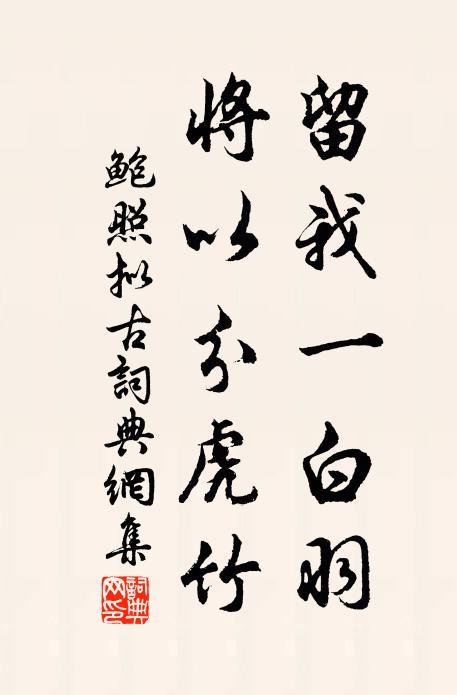 留我一白羽
将以分虎竹
鲍照拟古詞典網集
詞典网印